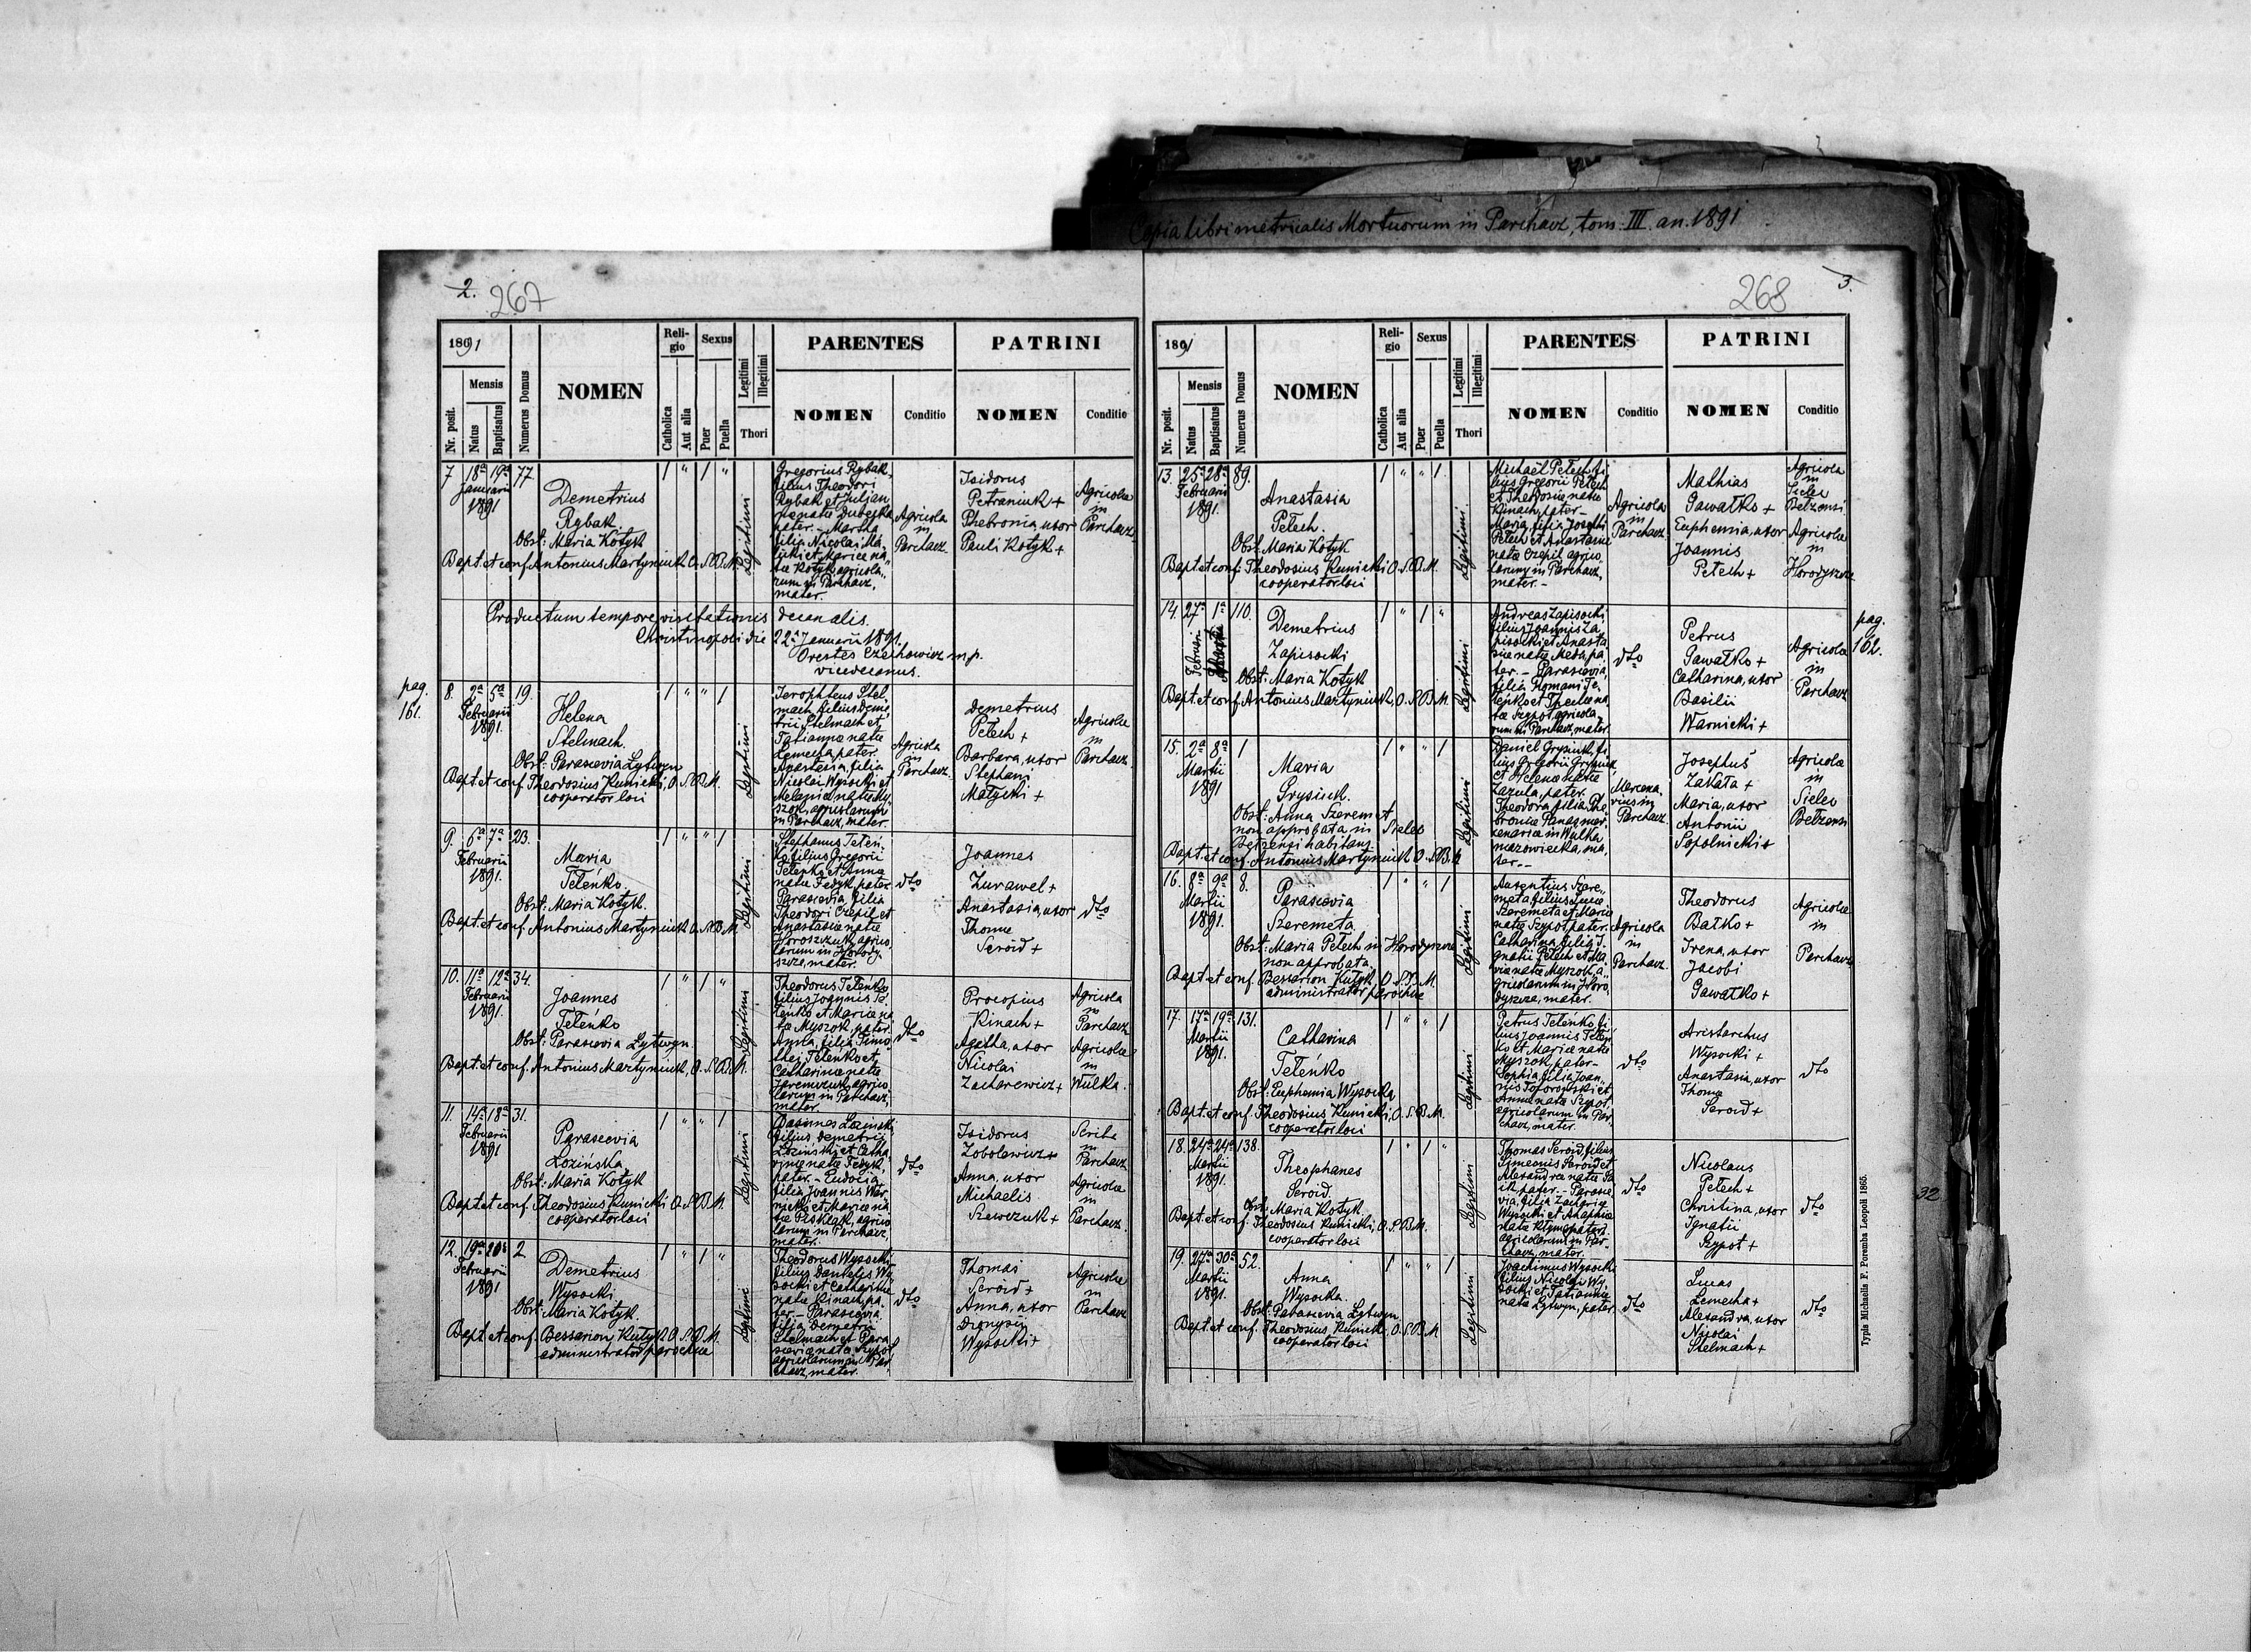 Copia libri metricalis Mortuorum in Parchacz, tom: III. an. 1891
2. 267
1891
Nr. posit.
Mensis
Natus
Baptisatus
Numerus Domus
NOMEN
Religio
Catholica
Aut alia
Sexus
Puer
Puella
Legitimi
Illegitimi
Thori
PARENTES
NOMEN
Conditio
PATRINI
NOMEN
Conditio
7 18a 19a 77
Januarii
1891
Demetrius
Rybak
Obst: Maria Kotyk
Bapt. et conf. Antonius Martyniuk O.S.B.M.
1 " 1 "
Legitimi
Gregorius Rybak,
filius Theodori
Rybak et Julian
nae natae Dubejka
pater. - Martha
filia Nicolai
et Mariae na
tae Kotyk agricola
rum in Parchacz,
mater.
Agricola
in
Parchacz
Isidorus
Petraniuk +
Phebronia, uxor
Pauli Kotyk +
Agricolae
in
Parchacz
Productum tempore visitationis decanalis.
Christinopoli die 22a Januarii 1891
Orestes Czechowicz m.p.
vicedecanus.
pag.
161.
8. 2a 5a 19.
Februarii
1891.
Helena
Stelmach.
Obst: Parascevia Lytwyn
Bapt. et conf. Theodosius Kunicki, O.S.B.M.
cooperator loci
1 " " 1
Legitimi
Jerophteus Stel,
mach, filius Deme
trii Stelmach et
Tatiannae natae
Lemecha, pater.
Anastasia, filia
Nicolai Wysocki et
Melaniae natae My
szok, agricolarum
in Parchacz, mater.
Agricola
in
Parchacz
Demetrius
Petech +
Barbara, uxor
Stephani
Matycki +
Agricolae
in
Parchacz
9. 6a 7a 23.
Februarii
1891.
Maria
Teleńko
Obst: Maria Kotyk.
Bapt. et conf. Antonius Martyniuk O.S.B.M.
1 " " 1
Legitimi
Stephanus Teleń,
ko filius Gregorii
Teleńko et Annae
natae Fedyk, pater
Parascevia, filia
Theodori Czepil et
Anastasiae natae
Horoszczuk, agrico
larum in Horody
szcze, mater.
dto
Joannes
Zurawel +
Anastasia, uxor
Thomae
Seroid +
dto
10. 11a 12a 34.
Februarii
1891.
Joannes
Teleńko
Obst: Parascevia Lytwyn
Bapt. et conf. Antonius Martyniuk, O.S.B.M.
1 " 1 "
Legitimi
Theodorus Teleńko
filius Joannis Te
leńko et Mariae na
tae Myszok, pater.
Anna, filia Timo
thei Teleńko et
Catharinae natae
Jaremczuk, agrico
larum in Parchacz,
mater.
dto
Procopius
Kinach +
Agatha, uxor
Nicolai
Zacharewicz +
Agricola
in
Parchacz
Agricolae
in
Wulka.
11. 14a 18a 31.
Februarii
1891
Parascevia
Łozińska
Obst: Maria Kotyk
Bapt. et conf. Theodosius Kunicki O.S.B.M.
cooperator loci
1 " " 1
Legitimi
Joannes Łoziński
filius Demetrii
Łoziński et Catha
rinae natae Fedyk,
pater. - Eudocia,
filia Joannis War
nicki et Mariae na
tae Pisklak, agrico
larum in Parchacz,
mater.
dto
Isidorus
Zobolewicz +
Anna, uxor
Michaelis
Szewczuk +
Scriba
in
Parchacz
Agricolae
in
Parchacz.
12. 19a 20a 2.
Februarii
1891
Demetrius
Wysocki
Obst: Maria Kotyk.
Bapt. et conf. Bessarion Kutyk O.S.B.M.
administrator parochiae
1 " 1 "
Legitimi
Theodorus Wysocki
filius Danielis Wy
socki et Catharinae
natae Kinach, pa
ter - Parascevia
filia Demetrii
Stelmach et Para
sceviae natae Szypot
agricolarum in Par
chacz, mater.
dto
Thomas
Seroid +
Anna, uxor
Dionysii
Wysocki +
Agricolae
in
Parchacz
268 3.
1891
Nr. posit.
Mensis
Natus
Baptisatus
Numerus Domus
NOMEN
Religio
Catholica
Aut alia
Sexus
Puer
Puella
Legitimi
Illegitimi
Thori
PARENTES
NOMEN
Conditio
PATRINI
NOMEN
Conditio
13. 25a 28a 89.
Februarii
1891.
Anastasia
Petech.
Obst: Maria Kotyk
Bapt. et conf: Theodosius Kunicki O.S.B.M.
cooperator loci
1 " " 1.
Legitimi
Michaël Petech, fi
lius Gregorii Petech
et Theodosiae natae
Kinach, pater -
Maria, filia Josephi
Petech et Anastasiae
natae Czepil agrico
larum in Parchacz,
mater. -
Agricola
in
Parchacz
Mathias
Gawałko +
Euphemia, uxor
Joannis
Petech +
Agricola
in
Sielec
Belzensi
Agricolae
in
Horodyszcze
14. 27a 1a 110.
Februarii
Demetrius
Zapisocki
Obst: Maria Kotyk
Bapt. et conf. Antonius Martyniuk, O.S.B.M.
1 " 1 "
Legitimi
Andreas Zapisocki
filius Joannis Za
pisocki et Anasta
siae natae Meda, pa
ter. - Parascevia,
filia Romani Te
leńko et Theclae na
tae Szypot agricola
rum in Parchacz, mater.
dto
Petrus
Gawałko +
Catharina, uxor
Basilii
Warnicki +
Agricolae
in
Parchacz
pag.
162.
15. 2a 8a 1
Martii
1891
Maria
Grysiuk.
Obst: Anna Szeremet
non approbata in Sielec
Belzensi habitans
Bapt. et conf. Antonius Martyniuk O.S.B.M.
1 " " 1
Legitimi
Daniel Grysiuk, fi
lius Gregorii Grysiuk
et Helenae natae
Zazula, pater.
Theodora, filia Phe
broniae Panas mer,
cenariae in Wulka
mazowiecka, ma,
ter. -
Mercena,
rius in
Parchacz
Josephus
Zakała +
Maria, uxor
Antonii
Sopolnicki +
Agricolae
in
Sielec
Belzensi
16. 8a 9a 8.
Martii
1891.
Parascevia
Szeremeta
Obst: Maria Petech in Horodyszcze
non approbata.
Bapt. et conf. Bessarion Kutyk O.S.B.M.
administrator parochiae
1 " " 1
Legitimi
Auxentius Szere,
meta filius Lucae
Szeremeta et Mariae
natae Szypot, pater.
Catharina, filia I,
gnatii Petech et Ma
riae natae Myszok, a
gricolarum in Horo,
dyszcze, mater.
Agricola
in
Parchacz.
Theodorus
Bałko +
Irena, uxor
Jacobi
Gawałko +
Agricolae
in
Parchacz
17. 17a 19a 131.
Martii
1891.
Catharina
Teleńko
Obst: Euphemia Wysocka
Bapt. et conf. Theodosius Kunicki, O.S.B.M.
cooperator loci
1 " " 1
Legitimi
Petrus Teleńko, fi
lius Joannis Teleń
ko et Mariae natae
Myszok, pater -
Sophia, filia Joan,
nis Toforowski et
Annae natae Szypot,
agricolarum in Par,
chacz, mater.
dto
Aristarchus
Wysocki +
Anastasia, uxor
Thomae
Seroid +
dto
18. 24a 24a 138.
Martii
1891.
Theophanes
Seroid.
Obst. Maria Kotyk
Bapt. et conf. Theodosius Kunicki, O.S.B.M.
cooperator loci
1 " 1 "
Legitimi
Thomas Seroid, filius
Simeonis Seroid et
Alexandrae natae
pater. - Parasce
via, filia Zachariae
Wysocki et Agaphiae
natae Klym
agricolarum in Par-
chacz, mater.
dto
Nicolaus
Petech +
Christina, uxor
Ignatii
Szypot +
dto
19. 27a 30a 52.
Martii
1891.
Anna
Wysocka.
Obst: Parascevia Lytwyn
Bapt. et conf. Theodosius Kunicki, O.S.B.M.
cooperator loci
1 " " 1
Legitimi
Joachimus Wysocki
filius Nicolai Wy,
socki et Tatiannae
natae Lytwyn, pater.
dto
Lucas
Lemecha +
Alexandra, uxor
Nicolai
Stelmach +
dto
32
Typis Michaelis F. Poremba Leopoli 1865.